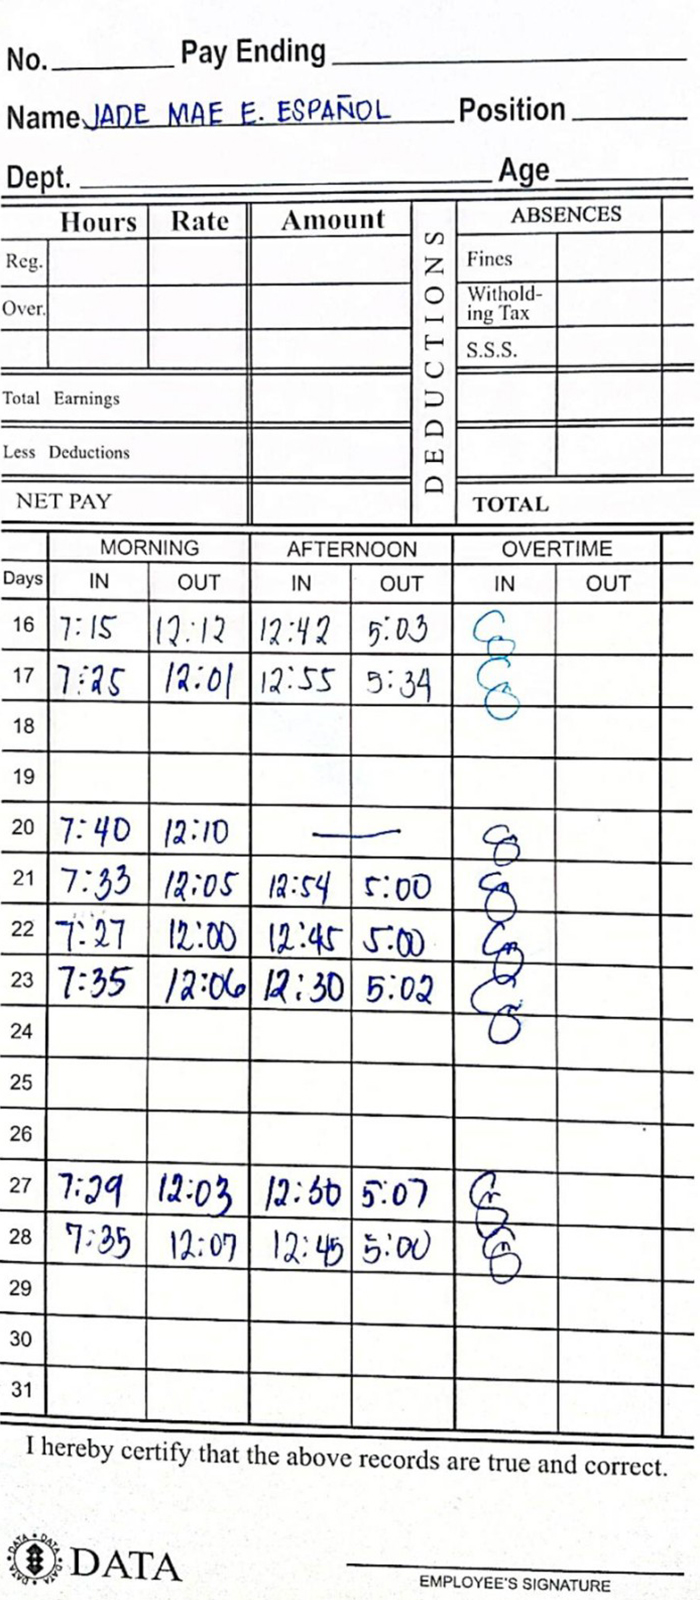 No. Pay Ending
Name JADE MAE E. ESPAÑOL Position
Dept. Age
Hours Rate Amount DEDUCTIONS ABSENCES
Reg. Fines
Over. Withold-
ing Tax
S.S.S.
Total Earnings
Less Deductions
NET PAY TOTAL
MORNING AFTERNOON OVERTIME
Days IN OUT IN OUT IN OUT
16 7:15 12:12 12:42 5:03
17 7:25 12:01 12:55 5:34
18
19
20 7:40 12:10 —
21 7:33 12:05 12:54 5:00
22 7:27 12:00 12:45 5:00
23 7:35 12:06 12:30 5:02
24
25
26
27 7:29 12:03 12:30 5:07
28 7:35 12:07 12:45 5:00
29
30
31
I hereby certify that the above records are true and correct.
DATA
EMPLOYEE'S SIGNATURE